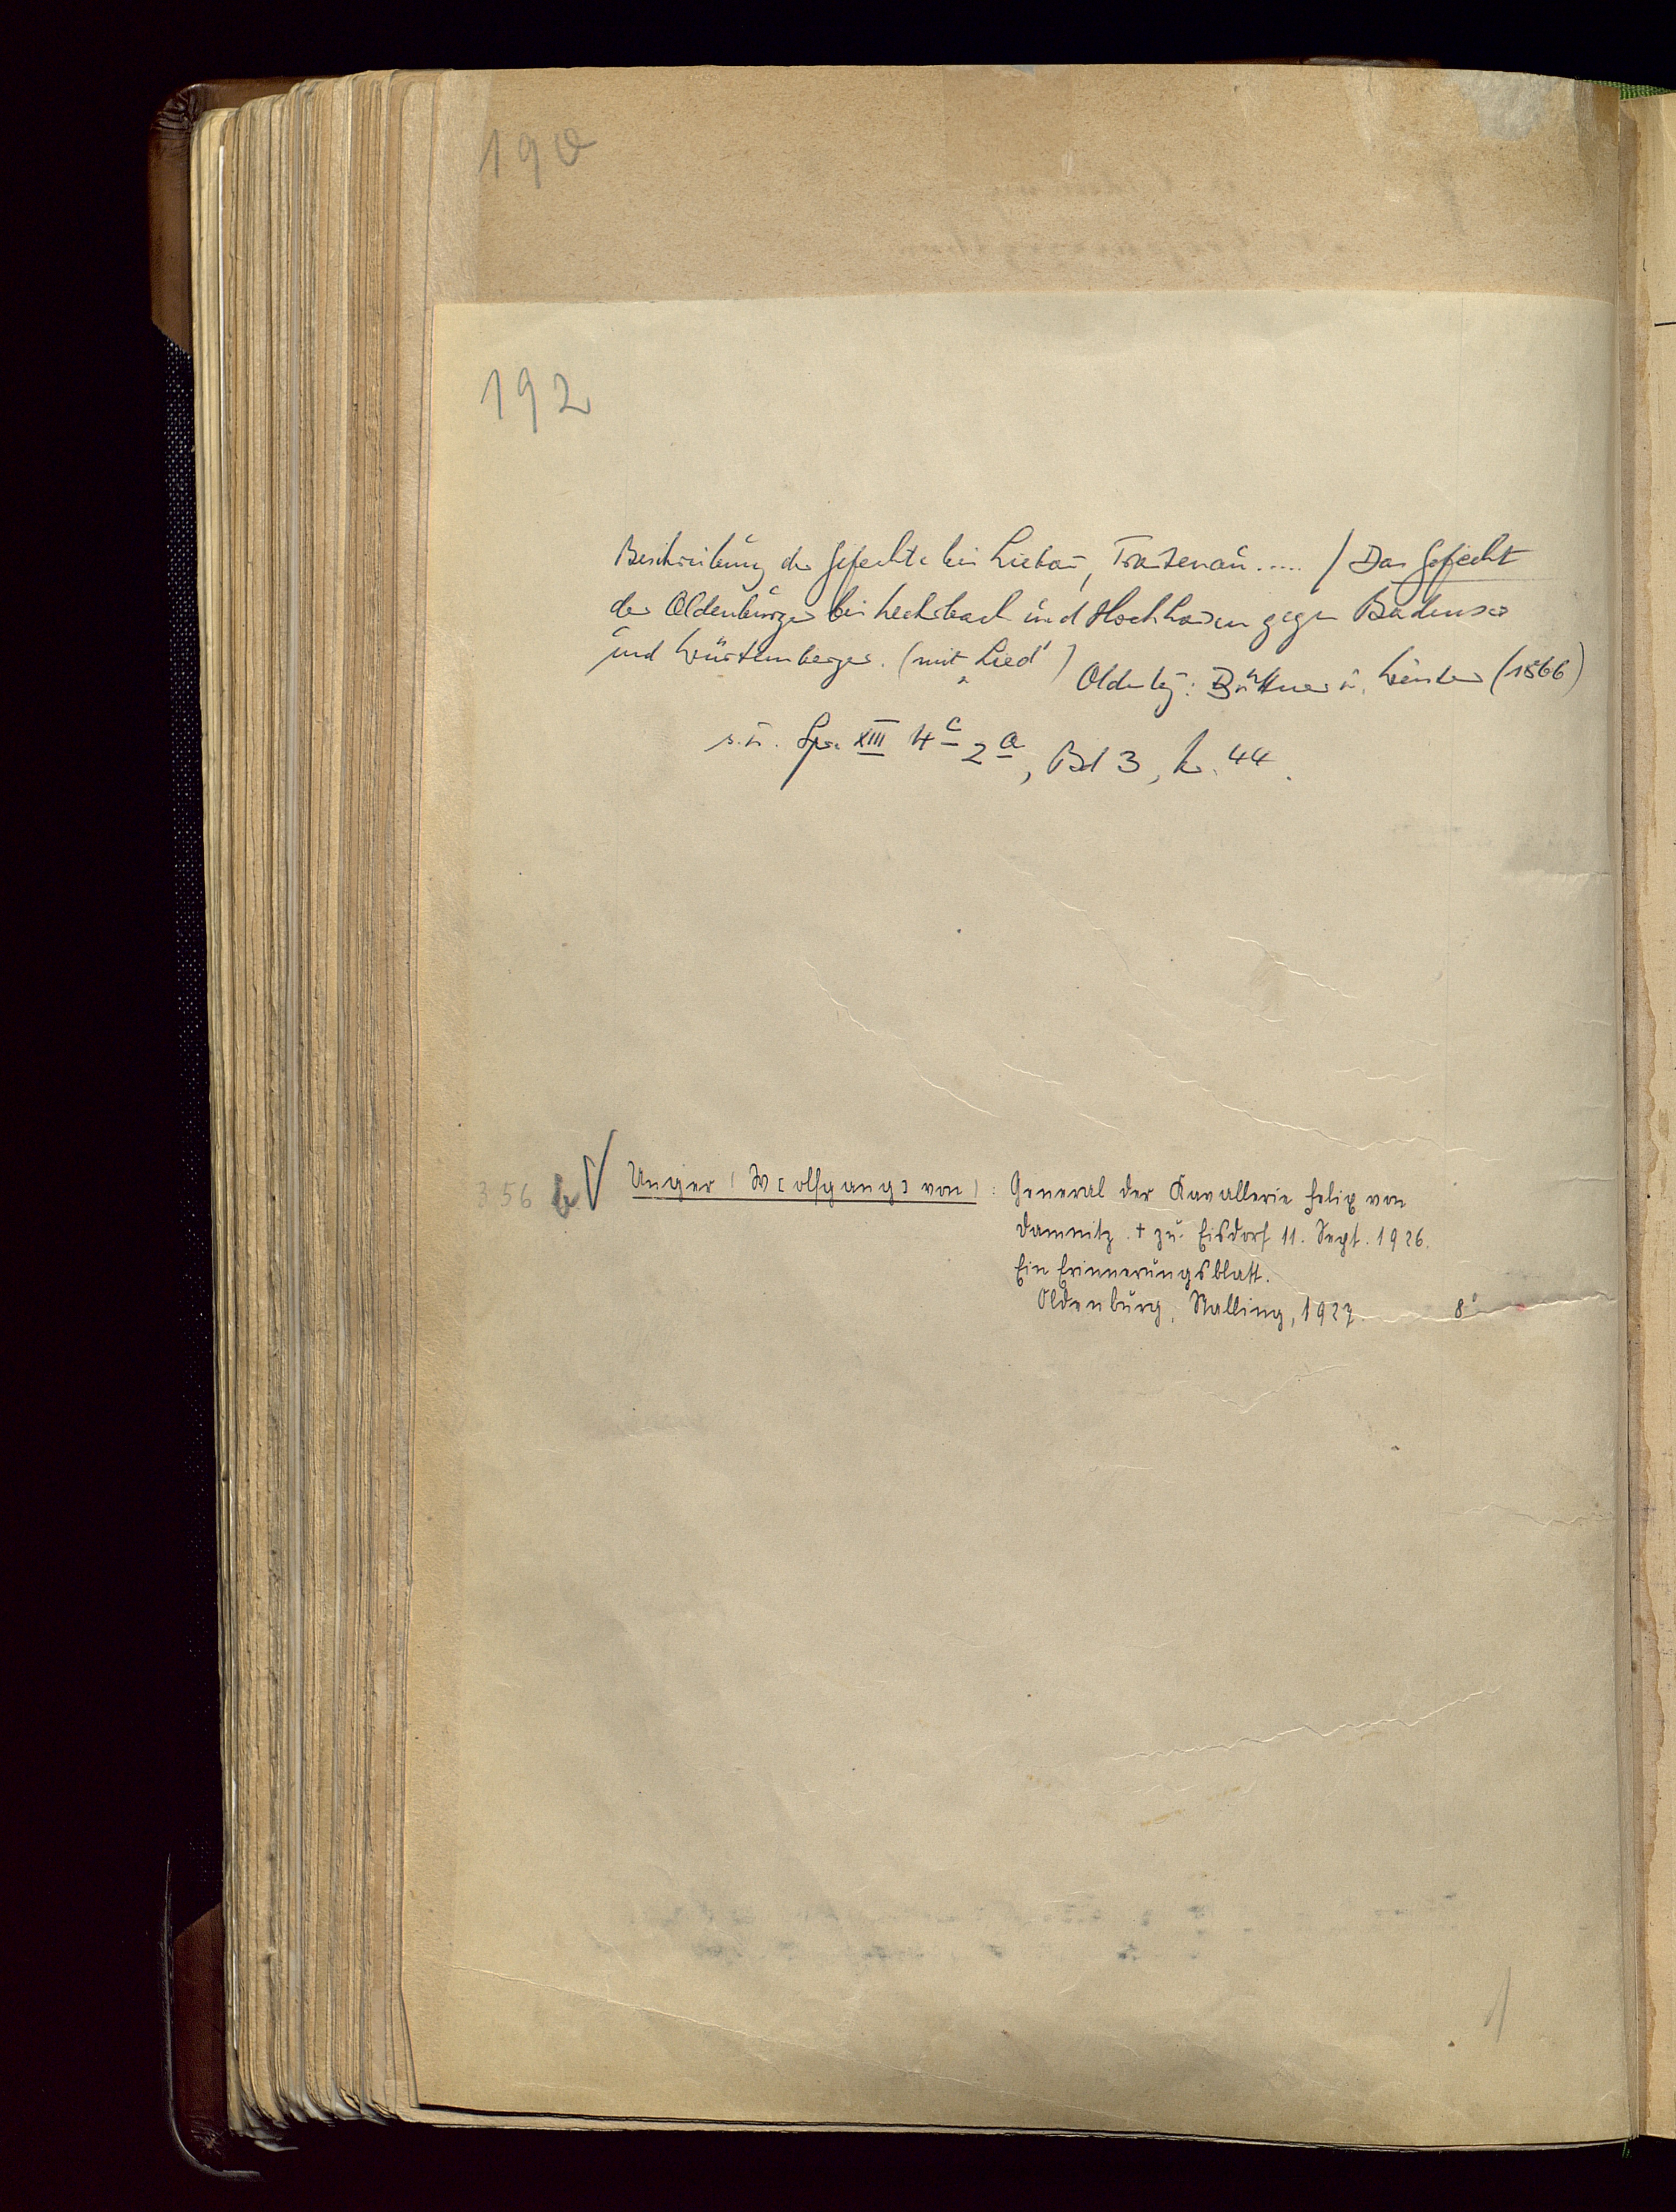 190
192
Beschreibung der Gefechte bei Liebau, Trautenau ..... / Das Gefecht
der Oldenburger bei Hochhausen gegen Badenser
und Württemberger. (mit Lied) Oldenbg: Büttner u. Winter (1866)
s. u. Spr XIII 4c 2a, Bd 3, Nr. 44.
356 b √ Unger (W[olfgang] von): General der Kavallerie Felix von
Damnitz. † zu Eisdorf 11. Sept. 1926.
Ein Erinnerungsblatt.
Oldenburg, Stalling, 1927. 8°